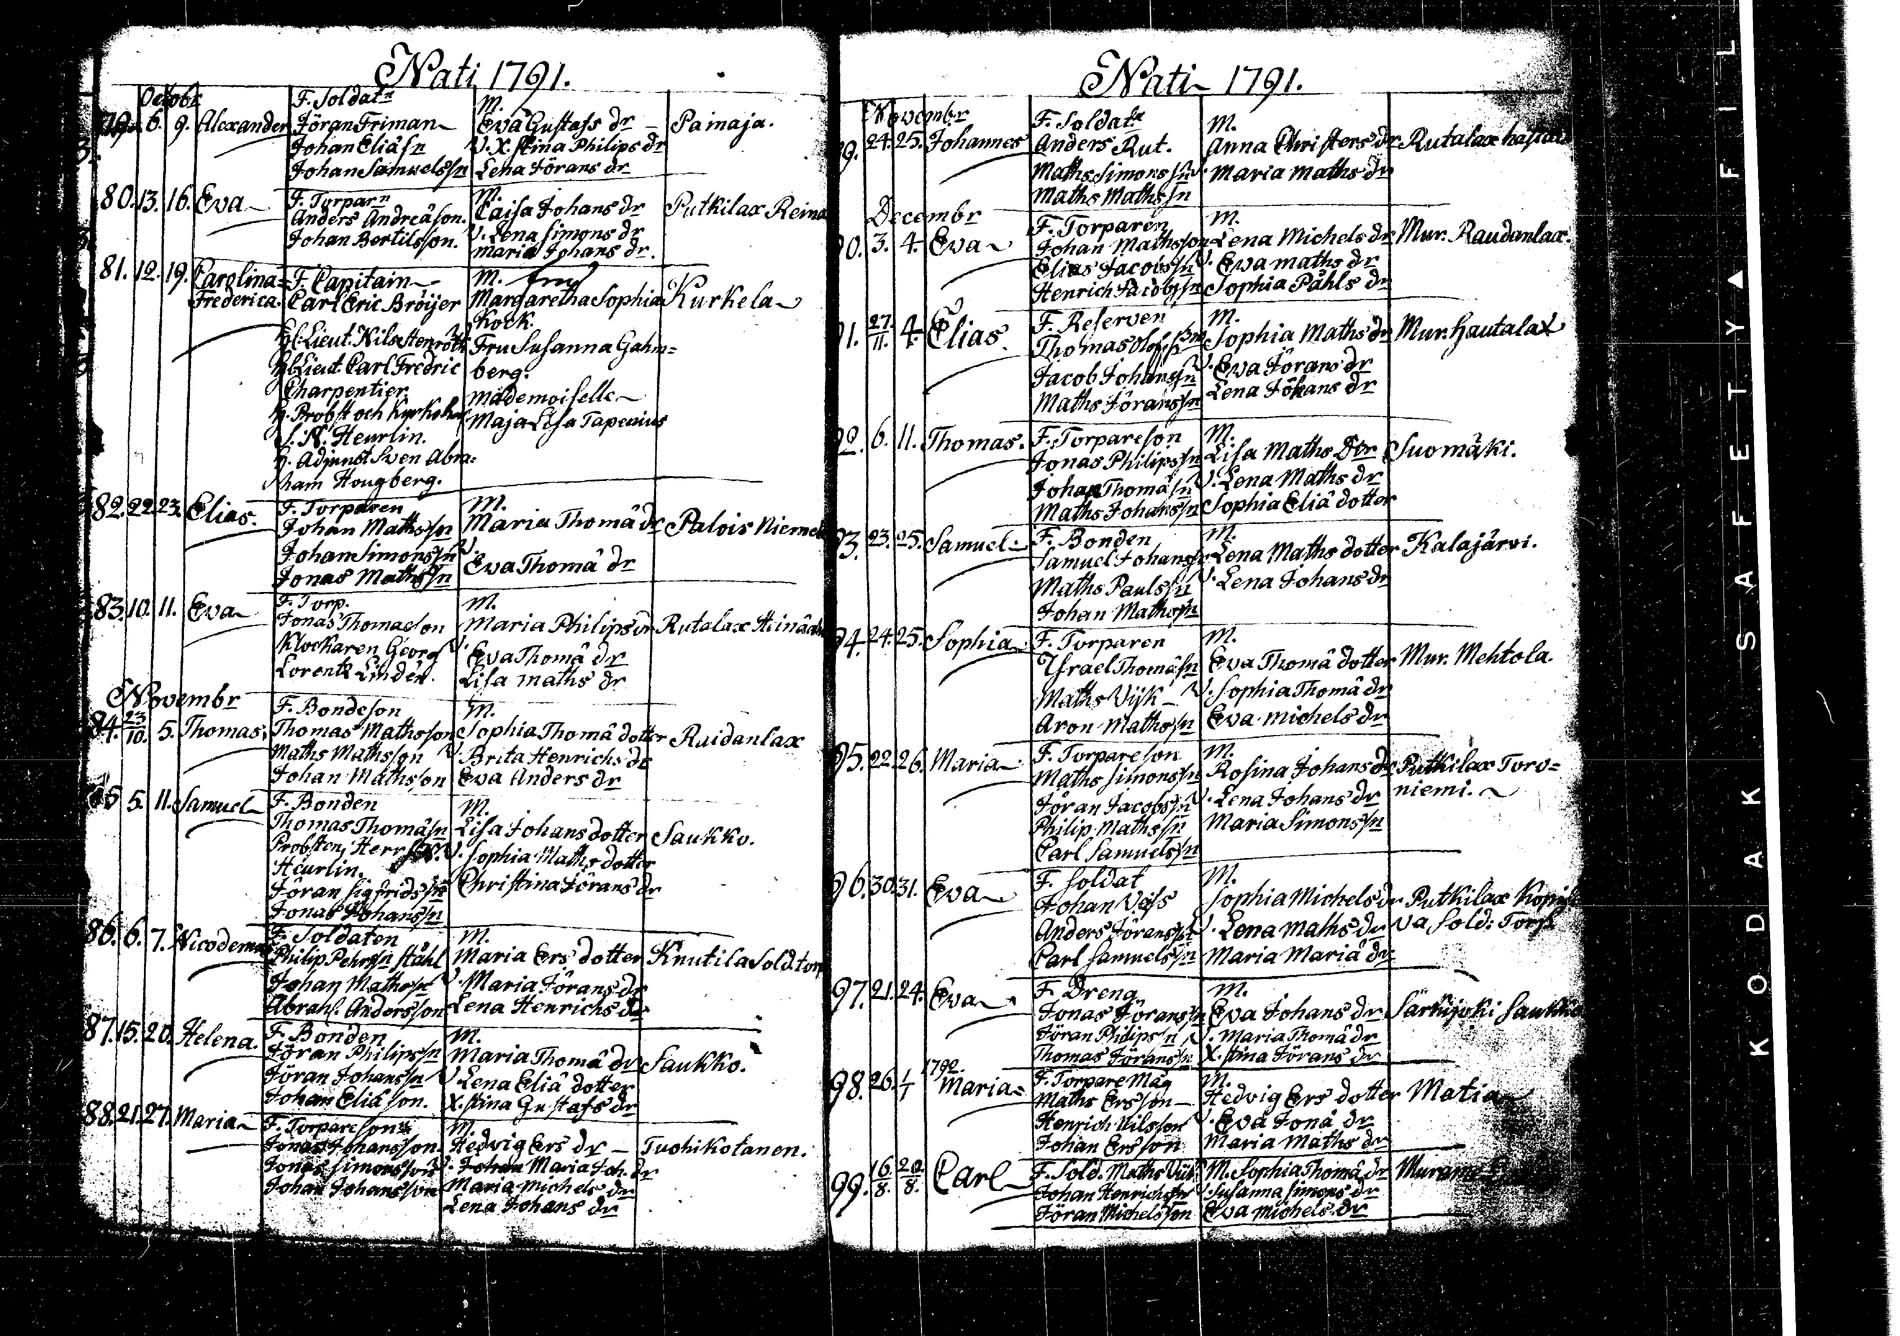 Nati 1791.
Octobr
F. Soldatn M.
6. 9. Alexander Jöran Friman Eva Gustafs dr Painaja.
Johan Eliäsn V. X.stina Philips dr
Johan Samuelssn Lena Jörans dr
80. 13. 16. Eva F. Torparn M. Caisa Johans dr Putkilax Reina
Anders Andreäson. V. Lena Simons dr
Johan Bertilsson. Maria Johans dr.
81. 12. 19. Carolina F. Capitain M. Fru
Frederica. Carl Eric Bröijer Margaretha Sophia Kurkela
Kock.
H. Lieut. Nils Stenroth Fru Susanna Gahm=
H. Lieut. Carl Fredric berg.
Charpentier Mademoiselle
H. Probst och Kyrkoher Maja Lisa Tapenius
J. N. Heurlin.
H. Adjunct Sven Abra=
ham Hougberg.
82. 22. 23. Elias. F. Torparen M.
Johan Mathssn Maria Thomä dr Palois Nieme
Johan Simonssn V.
Jonas Mathssn Eva Thomä dr
83. 10. 11. Eva F. Torp. M.
Jonas Thomaeson Maria Philips dr Rutalax Heinä
Klockaren Georg V. Eva Thomä dr
Lorentz Lindén. Lisa Maths dr
Novembr
F. Bondeson M.
84. 23/10. 5. Thomas. Thomas Mathsson Sophia Thomä dotter Raidanlax
Maths Mathsson V. Brita Henrichs dr
Johan Mathsson Eva Anders dr
85 5. 11. Samuel F. Bonden M.
Thomas Thomäsn Lisa Johans dotter Saukko.
Probsten Herr J.N. V. Sophia Maths dotter
Heurlin. Christina Jörans dr
Jöran Sigfridssn
Jonas Johanssn
86. 6. 7. Nicodemus F. Soldaten M.
Philip Pehrssn Stähl Maria Ers dotter Knutila Sold. torp
Johan Mathssn V. Maria Jörans dr
Abrah. Andersson Lena Henrichs dr
87. 15. 20. Helena. F. Bonden M.
Jöran Philipssn Maria Thomä dr Saukko.
Jöran Johanssn V. Lena Eliä dotter
Johan Eliäson. X.stina Gustafs dr
88. 21. 27. Maria F. Torpareson M.
Jonas Johansson. Hedvig Ers dr Tuohikotanen.
Jonas Simonsson V. Johan Maria Joh. dr
Johan Johansson Maria Michels dr
Lena Johans dr
Nati 1791.
Novembr
F. Soldatn M.
9. 24. 25. Johannes Anders Rut. Anna Christers dr Rutalax
Maths Simonssn V. Maria Maths dr
Maths Mathssn
Decembr
F. Torparen M.
0. 3. 4. Eva Johan Mathsson Lena Michels dr Mur. Raudanlax.
Elias Jacobssn V. Eva Maths dr
Henrich Jacobssn Sophia Påhls dr
1. 27/11. 4. Elias. F. Reserven M.
Thomas Olofssn Sophia Maths dr Mur. Hautalax
Jacob Johanssn V. Eva Jörans dr
Maths Jöranssn Lena Johans dr
92. 6. 11. Thomas. F. Torpareson M.
Jonas Philipssn Lisa Maths Dtr Suomäki.
Johan Thomäsn V. Lena Maths dr
Maths Johanssn Sophia Eliä dotter
93. 23. 25. Samuel F. Bonden M.
Samuel Johanssn Lena Maths dotter Kalajärvi.
Maths Paulssn V. Lena Johans dr
Johan Mathssn
94. 24. 25. Sophia F. Torparen M.
Israel Thomäsn Eva Thomä dotter Mur. Mehtola.
Maths Vijk V. Sophia Thomä dr
Aron Mathssn Eva Michels dr
95. 22. 26. Maria F. Torpareson M.
Maths Simonssn Rosina Johans dr Putkilax Torv=
Jöran Jacobssn V. Lena Johans dr niemi.
Philip Mathssn Maria Simonssn
Carl Samuelssn
96. 30. 31. Eva F. Soldat M.
Johan Vass Sophia Michels dr Putkilax
Anders Jöranssn V. Lena Maths dr va Sold: Torp.
Carl Samuelssn Maria Mariä dr
97. 21. 24. Eva F. Dreng M.
Jonas Jöranssn Eva Johans dr Särkijoki Saukko
Jöran Philipssn V. Maria Thomä dr
Thomas Jöranssn X.stina Jörans dr
98. 26. 1/1 1792. Maria= F. Torpare Måg M.
Maths Ersson Hedvig Ers dotter Matia
Henrich Nilsson V. Eva Jonä dr
Johan Ersson Maria Maths dr
99. 16/8. 20/8. Carl F. Sold. Maths M. Sophia Thomä dr Murame
Johan Henrichssn V. Susanna Simons dr
Jöran Michelsson Eva Michels dr
KODAK SAFETY ▲ FIL